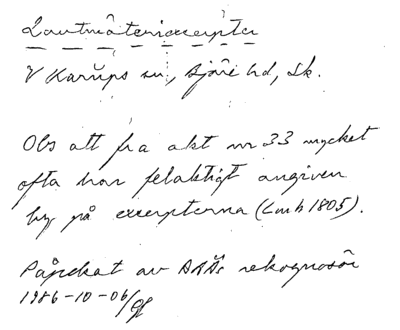 Lantmäteriexcerpter
V Karups sn, Bjäre hd, Sk.
Obs att fra akt nr 33 mycket
ofta har felaktigt angiven
by på excerpterna (Lmh 1805).
Påpekat av RAÄs rekognosör
1986-10-06/